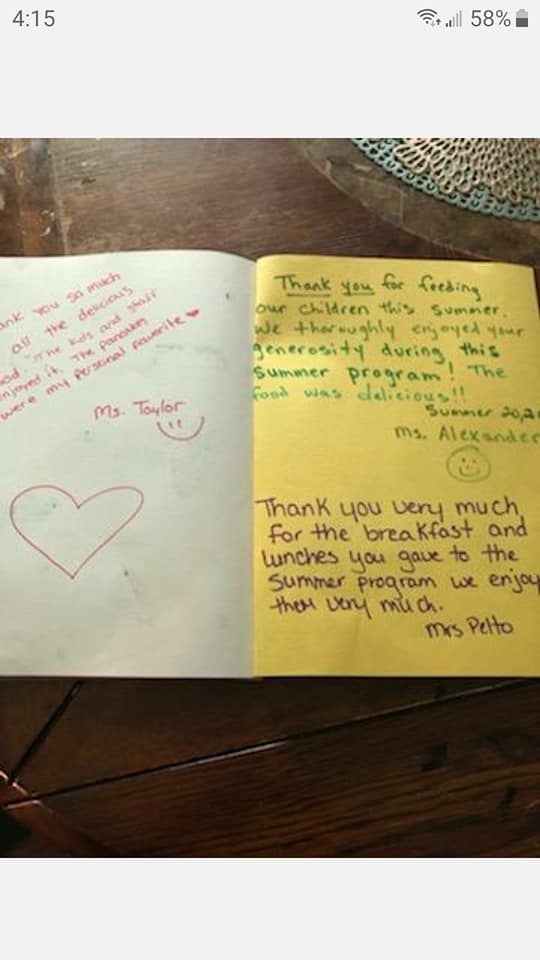 4:15
58%
ank you so much
all the delicious
od. The kids and staff
njoyed it. The pancakes
were my personal favorite
Ms. Taylor
Thank you for feeding
our children this summer.
We thoroughly enjoyed your
generosity during this
Summer program! The
food was delicious!!
Summer
Ms. Alexander
Thank you very much
for the breakfast and
lunches you gave to the
Summer program we enjoy
them very much.
Mrs Pelto